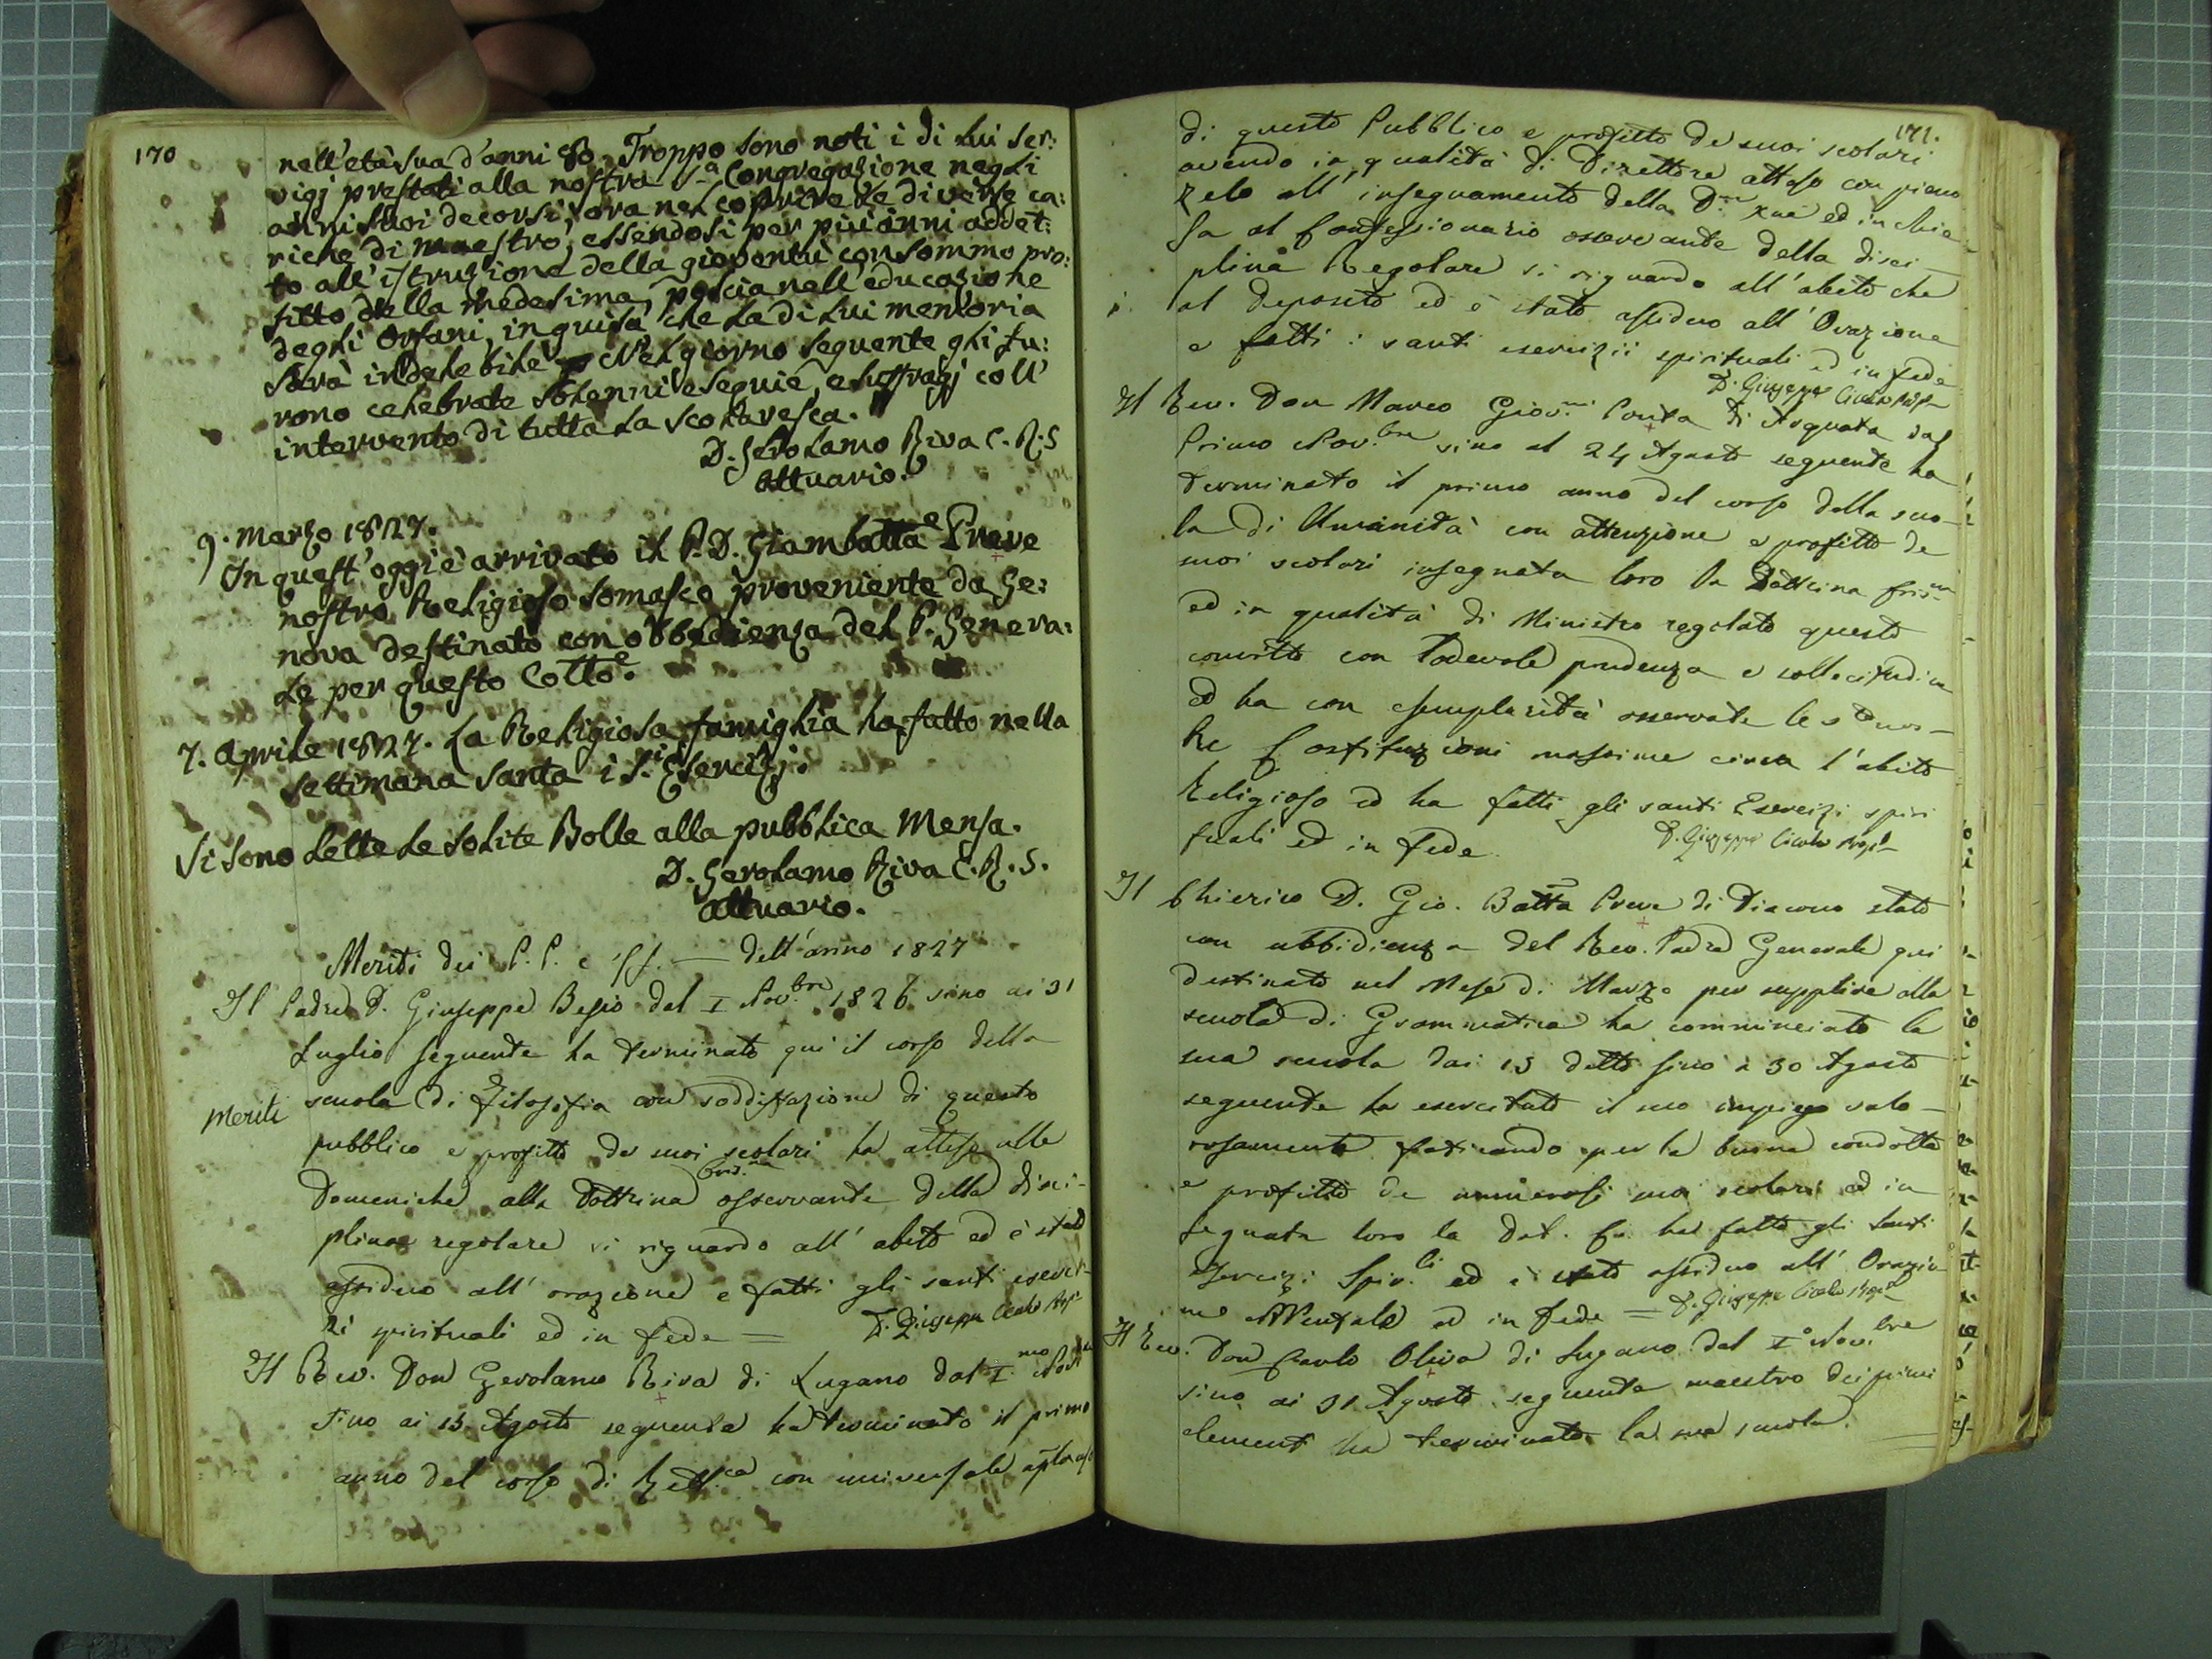 170
nell'età sua d'anni 80. Troppo sono noti i di lui ser:
vigj prestati alla nostra Congregazione negli
anni suoi decorsi, ora nel coprire le diverse ca:
riche di maestro, essendosi per più anni addet:
to all'istruzione della gioventù con sommo pro:
fitto della medesima, poscia nell'educazione
degli Orfani, inguisa che la di lui memoria
sarà indelebile Nel giorno seguente gli fu:
rono celebrate solenni esequie, e suffragj coll'
intervento di tutta la scolaresca.
D. Gerolamo Riva C. R. S
Attuario.
9. Marzo 1827.
In quest'oggi è arrivato il P. D. Giambatta Preve
nostro Religioso Somasco proveniente da Ge:
nova destinato con obbedienza del P. Genera:
le per questo Colle.
7. Aprile 1827. La Religiosa famiglia ha fatto nella
settimana santa i S.i Esercizj.
Si sono lette le solite Bolle alla pubblica Mensa.
D. Gerolamo Riva C. R. S.
Attuario.
Meriti dei P. P. e ff. — dell'anno 1827
Il Padre D. Giuseppe Besio dal I Nov.bre 1826 sino ai 31
Luglio seguente ha terminato qui il corso della
Meriti
scuola di Filosofia con soddisfazione di questo
pubblico e profitto de suoi scolari ha atteso alle
Domeniche alla Dottrina Crist.na osservante della disci-
plina regolare si riguardo all'abito ed è stato
assiduo all'orazione e fatti gli santi eserci-
zi spirituali ed in fede = D. Giuseppe
Il Rev. Don Gerolamo Riva di Lugano dal I.mo Nov
sino ai 15 Agosto seguente ha terminato il primo
anno del corso di Rett.ca con universale aplauso
171.
di questo Pubblico e profitto de suoi scolari
avendo in qualità di Direttore atteso con pieno
zelo all'insegnamento della D.na xna ed in chie-
sa al Confessionario osservante della disci-
plina Regolare si riguardo all'abito che
al deposito ed è stato assiduo all'Orazione
e fatti i santi esercizii spirituali ed in fede
D. Giuseppe
Il Rev. Don Marco Giov.ni Ponta di Arquata dal
Primo Nov.bre sino al 24 Agosto seguente ha
terminato il primo anno del corso della scuo-
la di Umanità con attenzione e profitto de
suoi scolari insegnata loro la Dottrina Cris.na
ed in qualità di Ministro regolato questo
convitto con lodevole prudenza e sollecitudine
ed ha con esemplarità osservate le nos-
tre Costituzioni massime circa l'abito
Religioso ed ha fatti gli santi Esercizi spiri
tuali ed in fede. D. Giuseppe
Il Chierico D. Gio. Batta Preve di Diacono stato
con ubbidienza del Rev. Padre Generale qui
destinato nel Mese di Marzo per supplire alla
scuola di Grammatica ha comminciato la
sua scuola dai 15 detto sino a 30 Agosto
seguente ha esercitato il suo impiego valo-
rosamente faticando per la buona condotta
e profitto de numerosi suoi scolari ed in
segnata loro la Dot. Cr. ha fatto gli Santi
Esercizi Spir.li ed è stato assiduo all'Orazio
ne Mentale ed in fede = D. Giuseppe
Il Rev. Don Carlo Oliva di Lugano dal I° Nov.bre
sino ai 31 Agosto seguente maestro dei primi
elementi ha terminato la sua scuola.